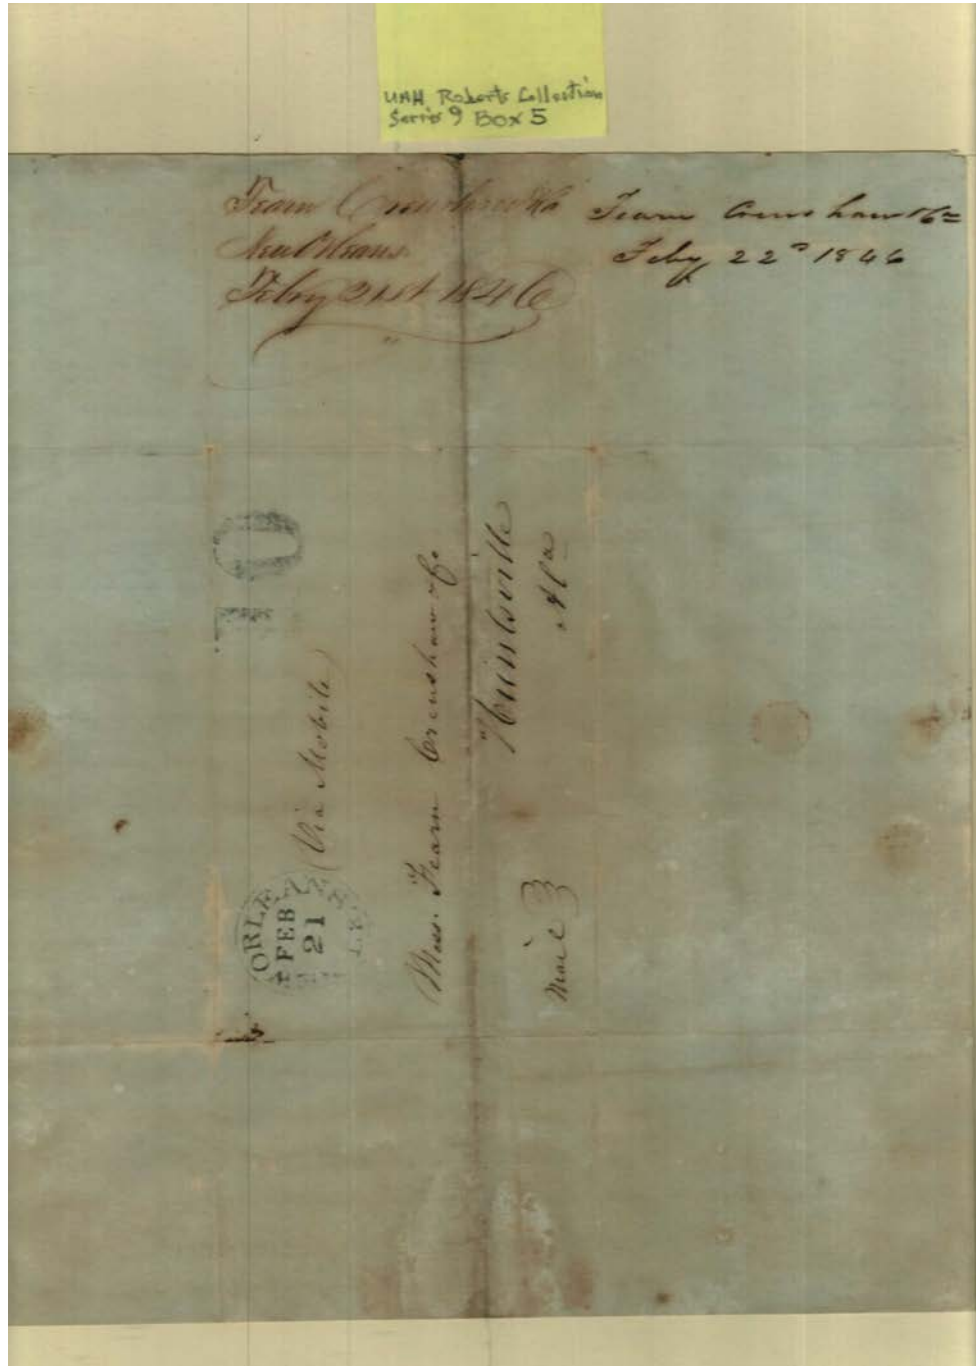 UAH Roberts Collection
Series 9 Box 5
Fearn Crenshaw & Co
New Orleans
Feby 21st 1846
Fearn Crenshaw & Co
Feby 22d 1846
10
ORLE
FEB
21
(Via Mobile)
Mess. Fearn Crenshaw & Co
Huntsville
Ala
Mail